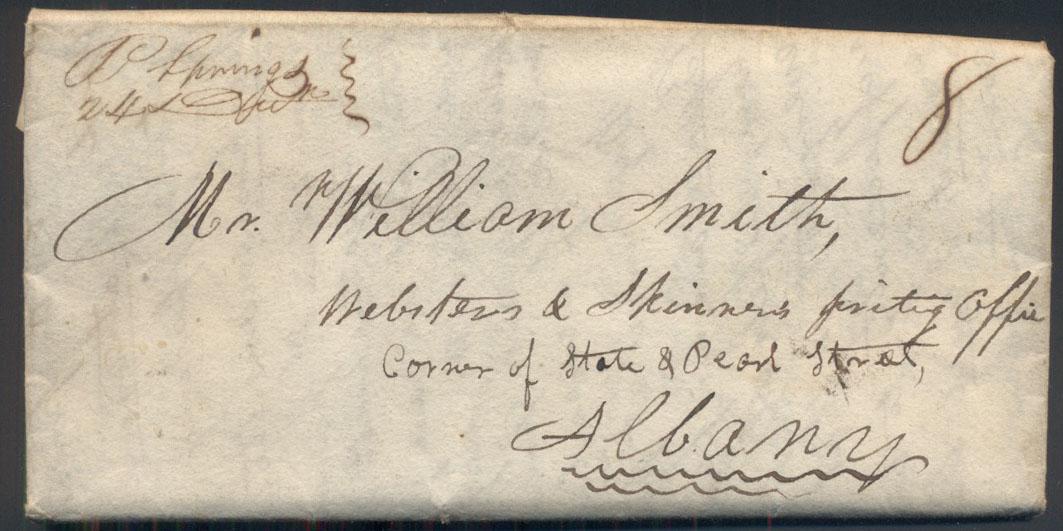 P Springs
24 Decr
8
Mr. William Smith,
Websters & Skinners priting Office
Corner of State & Pearl Street,
Albany